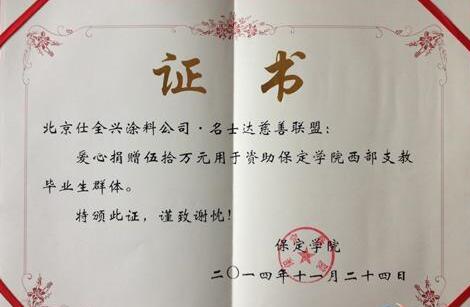 证书
北京仕全兴涂料公司·名士达慈善联盟：
爱心捐赠伍拾万元用于资助保定学院西部支教
毕业生群体。
特颁此证，谨致谢忱！
保定学院
二〇一四年十一月二十四日